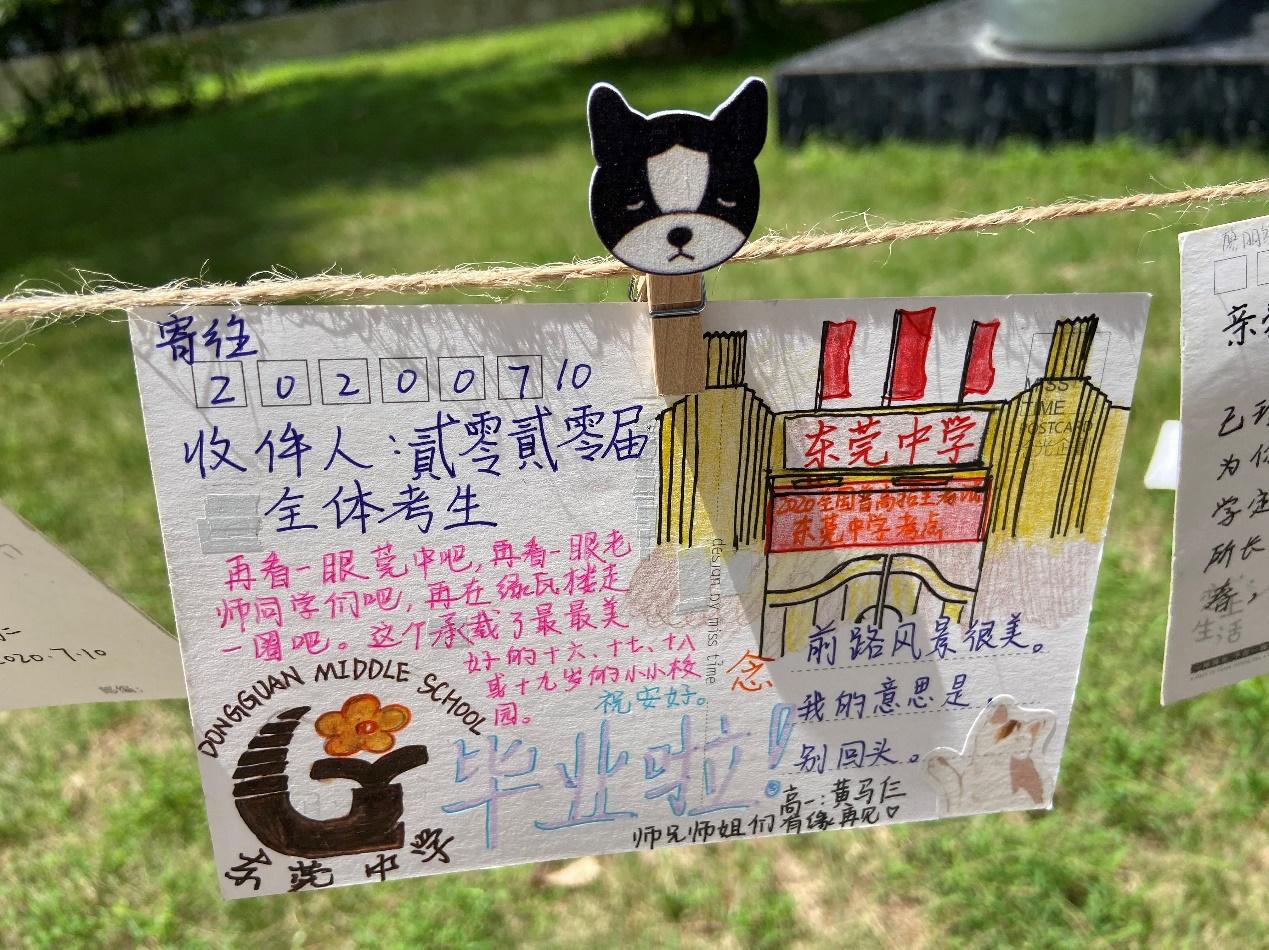 寄往
2 0 2 0 0 7 10
收件人:貳零貳零届
全体考生
再看一眼莞中吧,再看一眼老
师同学们吧,再在绿瓦楼走
一圈吧。这个承载了最最美
好的十六、十七、十八
或十九岁的小小校
园。
祝安好。
DONGGUAN MIDDLE SCHOOL
东莞中学
毕业啦!
design by miss time
MISS
TIME
POSTCARD
东莞中学
2020全国普高招生考试
东莞中学考点
念
前路风景很美。
我的意思是,
别回头。
高一:黄马仁
师兄师姐们有缘再见♡
2020.7.10
亲
为你
学定
所长
生活